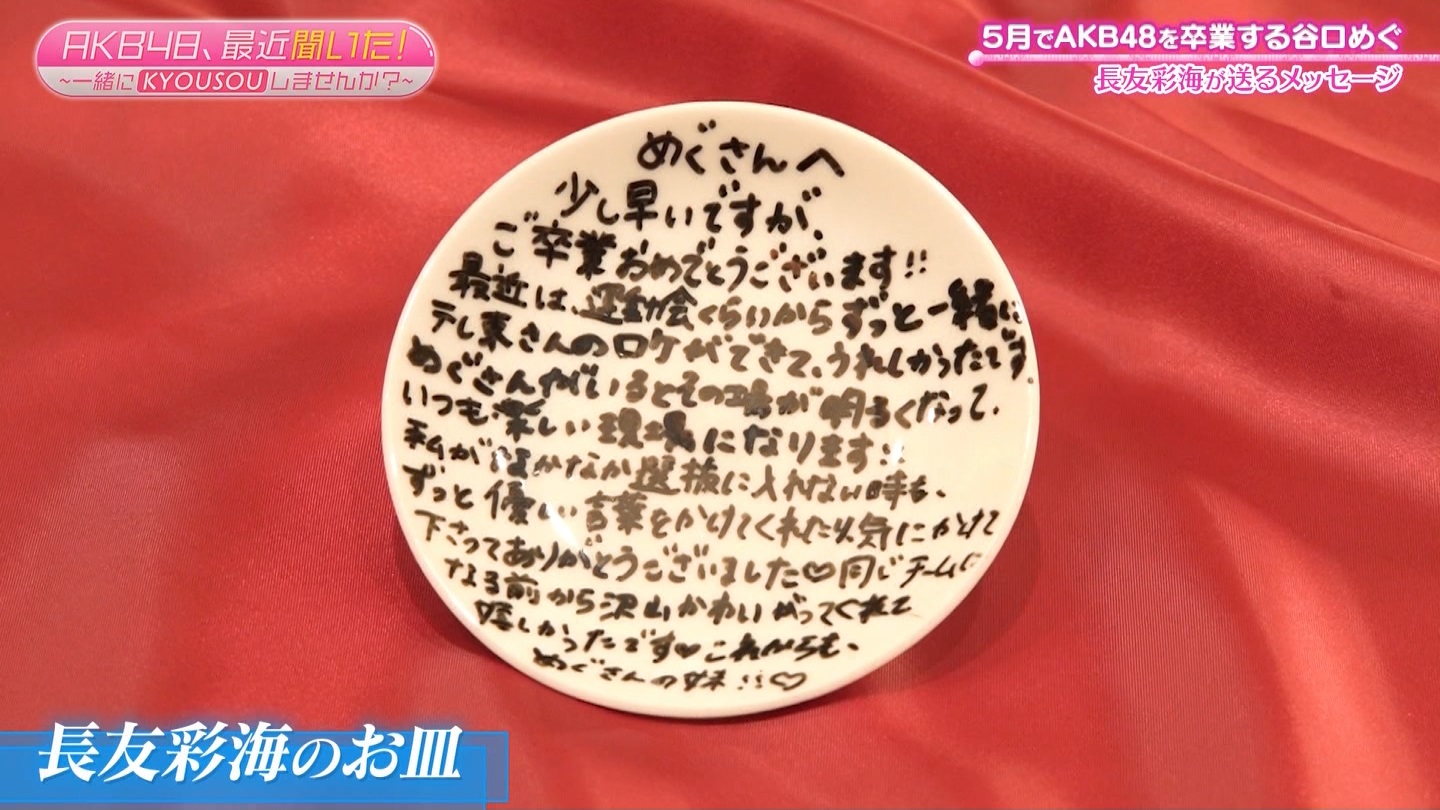 AKB48、最近聞いた！
～一緒にKYOUSOUしませんか？～
5月でAKB48を卒業する谷口めぐ
長友彩海が送るメッセージ
めぐさんへ
少し早いですが、
ご卒業おめでとうございます!!
最近は、運動会くらいからずっと一緒に
テレ東さんのロケができて、うれしかったです。
めぐさんがいるとその場が明るくなって、
いつも楽しい現場になります!!
私がなかなか選抜に入れない時も、
ずっと優しい言葉をかけてくれたり、気にかけて
下さってありがとうございました♡同じチームに
なる前から沢山かわいがってくれて
嬉しかったです♥これからも、
めぐさんの妹!!♡
長友彩海のお皿